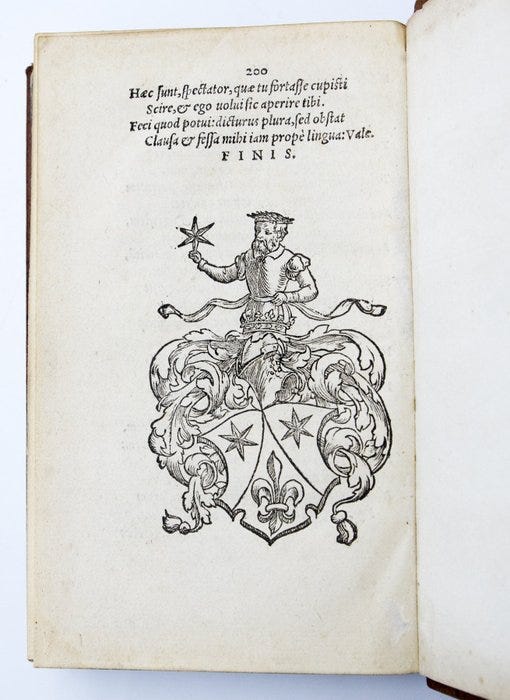 200
Hæc sunt, spectator, quæ tu fortasse cupisti
Scire, & ego uolui sic aperire tibi.
Feci quod potui: dicturus plura, sed obstat
Clausa & fessa mihi iam propè lingua: Vale.
FINIS.